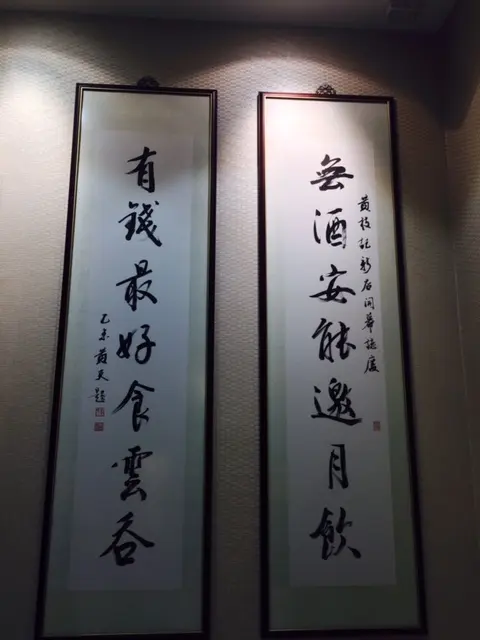 黃枝記新店開幕誌慶
無酒安能邀月飲
有錢最好食雲吞
乙未黃天題